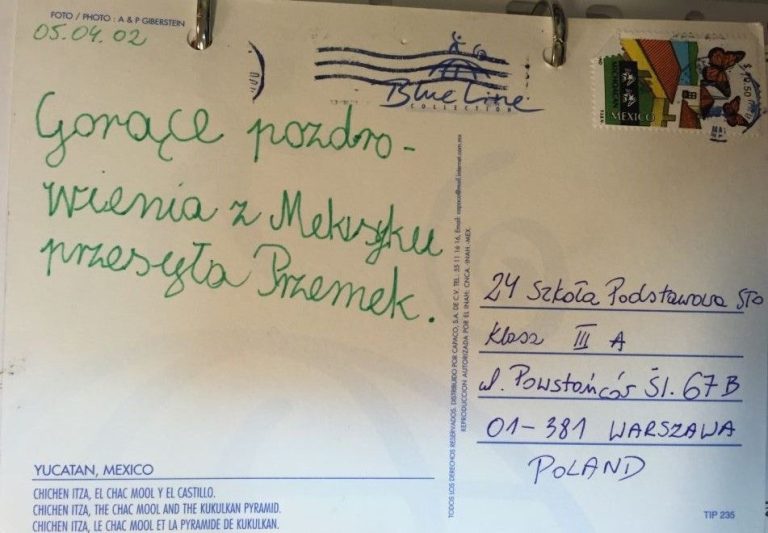 FOTO / PHOTO : A & P GIBERSTEIN
05.04.02
Gorące pozdro-
wienia z Meksyku
przesyła Przemek.
Blue Line
COLLECTION
MEXICO
24 Szkoła Podstawowa STO
Klasa III A
ul. Powstańców Śl. 67B
01-381 WARSZAWA
POLAND
YUCATAN, MEXICO
CHICHEN ITZA, EL CHAC MOOL Y EL CASTILLO.
CHICHEN ITZA, THE CHAC MOOL AND THE KUKULKAN PYRAMID.
CHICHEN ITZA, LE CHAC MOOL ET LA PYRAMIDE DE KUKULKAN.
TODOS LOS DERECHOS RESERVADOS. DISTRIBUIDO POR CAPACO, S.A. DE C.V. TEL.: 55 11 16 16, Email: capaco@mail.internet.com.mx
REPRODUCCION AUTORIZADA POR EL INAH: CNCA.-INAH.-MEX.
TIP 235